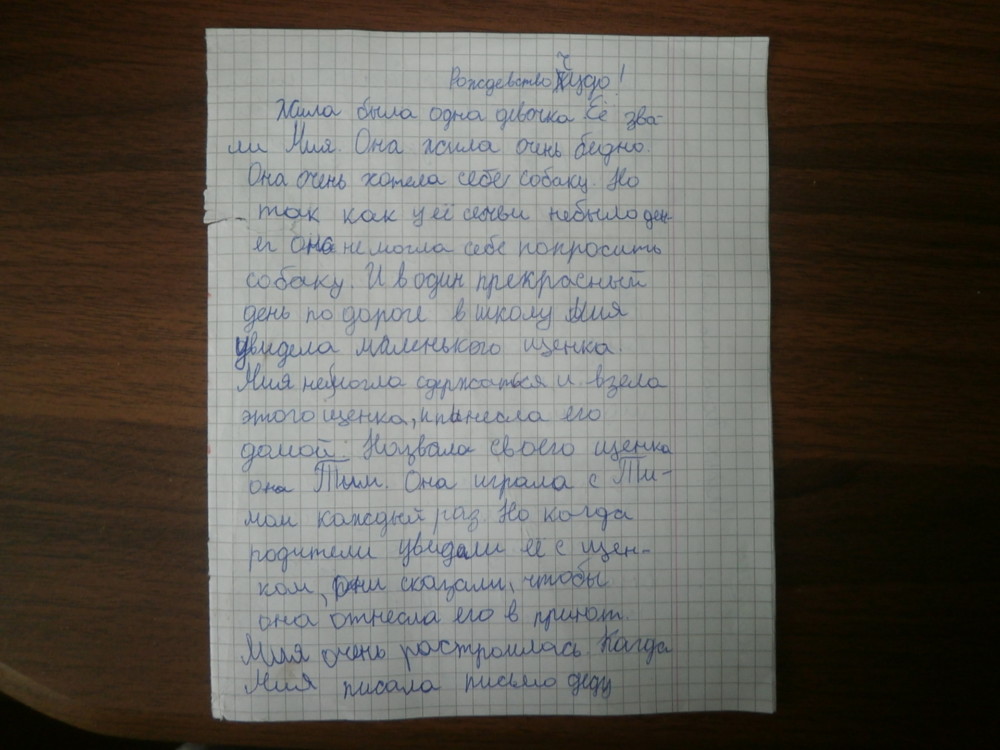 Рождевство Чудо!
Жила была одна девочка Её зва-
ли Мия. Она жила очень бедно.
Она очень хотела себе собаку. Но
так как у её семьи небыло ден-
ег она немогла себе попросить
собаку. И в один прекрасный
день по дороге в школу Мия
увидела маленького щенка.
Мия немогла сдержаться и взела
этого щенка, и принесла его
домой. Назвала своего щенка
она Тим. Она играла с Ти-
мом каждый раз. Но когда
родители увидали её с щен-
ком, они сказали, чтобы
она отнесла его в приют.
Мия очень растроилась. Когда
Мия писала письмо деду